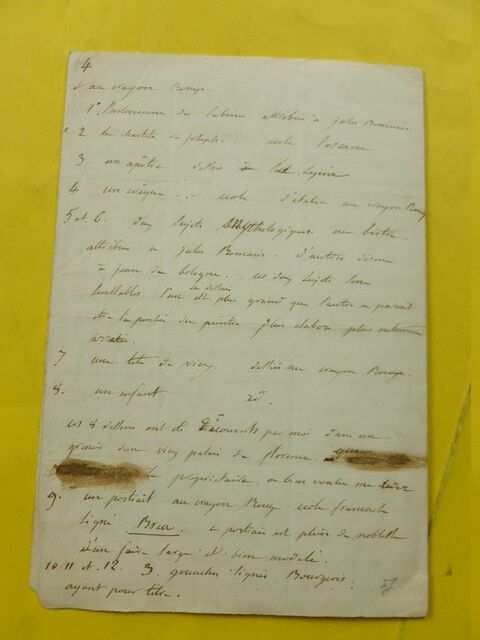 4
et au crayon Rouge.
1° l'enlèvement des Sabines attribué à Jules Romain
2 la chasteté de joseph. école Toscane
3. un apôtre dessin
4 un évêque. école d'italie au crayon Rouge
5 et 6. deux Sujets Mythologiques au bistre.
attribués a Jules Romain. D'autres disent
à jean de bologne. ces deux Sujets sont
semblables. l'un des dessins est plus grand que l'autre a parait
de la pensée du peintre. plus élaboré plus

7 une tête de vieux dessin au crayon Rouge.
8. un enfant id.
ces 8 dessins ont été Découverts par moi dans un
grenier d'un vieux palais de florence.
le propriétaire a bien voulu me céder
9. un portrait au crayon Rouge école française
signé Brea ce portrait est plein de noblesse
d'un faire large et bien modelé.
10 11 et 12. 3 gouaches signés Bourgeois
ayant pour titre.